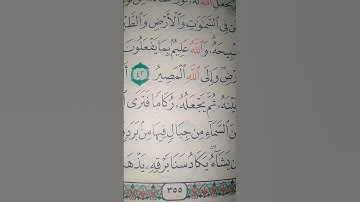 يَجْعَلِ ٱللَّهُ لَهُۥ
فِى ٱلسَّمَـٰوَٰتِ وَٱلْأَرْضِ وَٱلطَّ
بِيحَهُۥۗ وَٱللَّهُ عَلِيمٌۢ بِمَا يَفْعَلُونَ
رْضِۖ وَإِلَى ٱللَّهِ ٱلْمَصِيرُ ٤٢ أَ
بَيْنَهُۥ ثُمَّ يَجْعَلُهُۥ رُكَامًا فَتَرَى
نَ ٱلسَّمَآءِ مِن جِبَالٍ فِيهَا مِنۢ بَرَدٍ
ن يَشَآءُۖ يَكَادُ سَنَا بَرْقِهِۦ يَذْهَ
٣٥٥